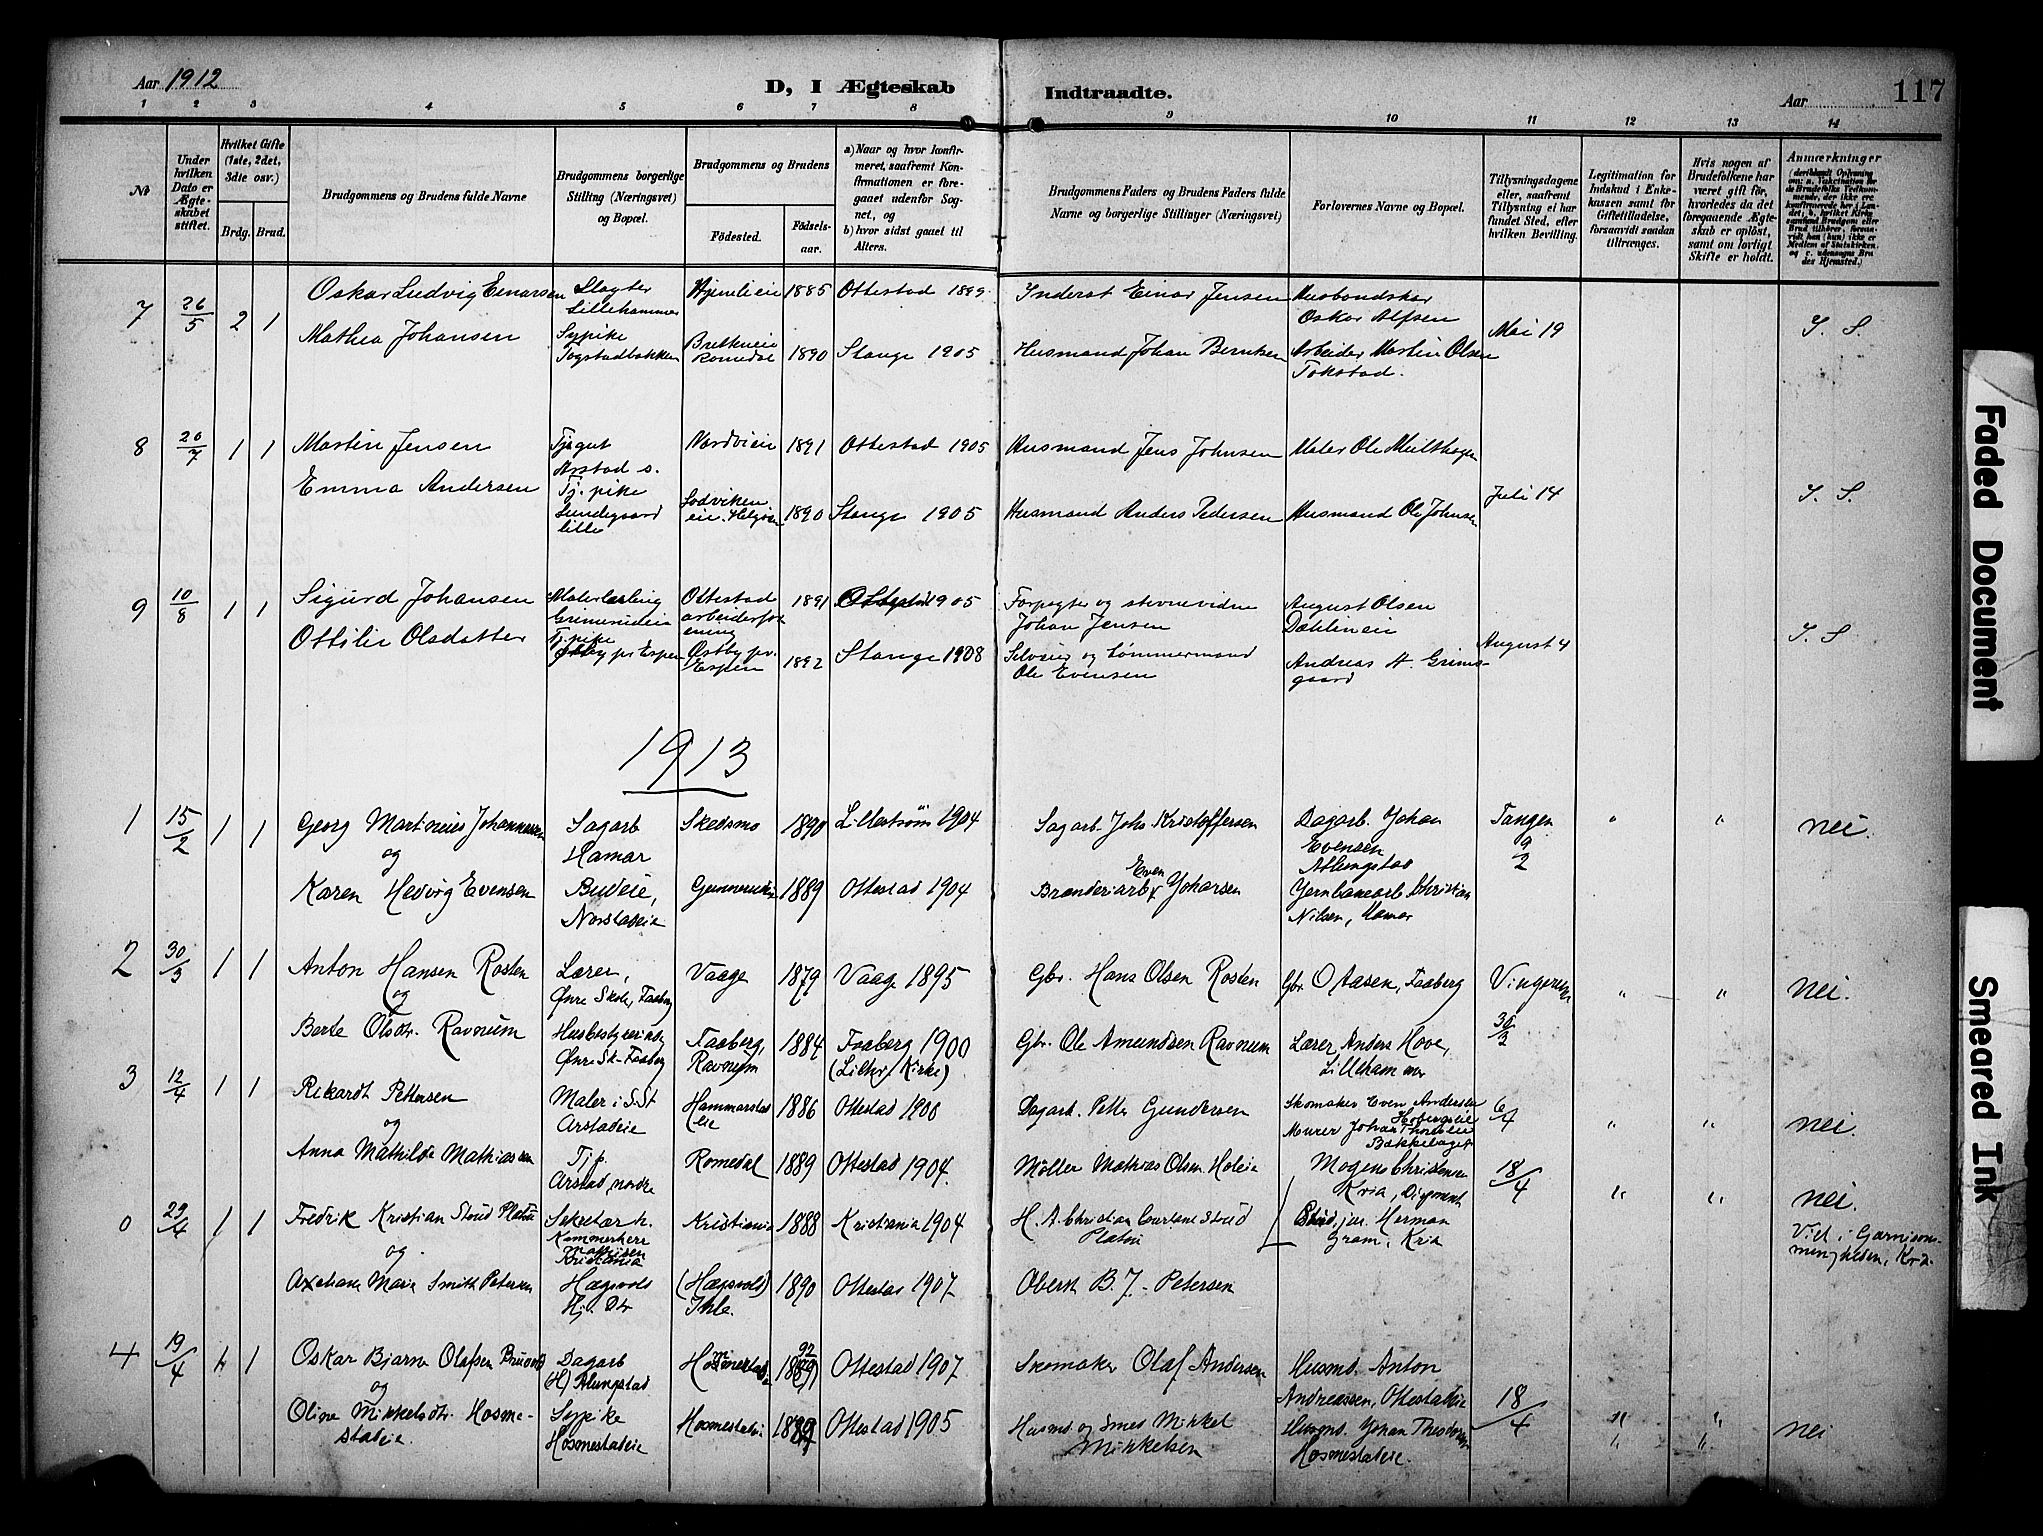 Aar 1912
D, I Ægteskab Indtraadte.
Aar
117
1 2 3 4 5 6 7 8 9 10 11 12 13 14
№
Under hvilken Dato er Ægteskabet stiftet.
Hvilket Gifte (1ste, 2det, 3die osv.)
Brdg. Brud.
Brudgommens og Brudens fulde Navne
Brudgommens borgerlige Stilling (Næringsvei) og Bopæl.
Brudgommens og Brudens
Fødested. Fødselsaar.
a) Naar og hvor konfirmeret, saafremt Konfirmationen er foregaaet udenfor Sognet, og
b) hvor sidst gaaet til Alters.
Brudgommens Faders og Brudens Faders fulde Navne og borgerlige Stillinger (Næringsvei)
Forlovernes Navne og Bopæl.
Tillysningsdagene eller, saafremt Tillysning ei har fundet Sted, efter hvilken Bevilling.
Legitimation for Indskud i Enkekassen samt for Giftetilladelse, forsaavidt saadan tiltrænges.
Hvis nogen af Brudefolkene har været gift før, hvorledes da det foregaaende Ægteskab er opløst, samt om lovligt Skifte er holdt.
Anmærkninger
7 26/5 2 1 Oskar Ludvig Einarsen Slagter Lillehammer Hjemlieie 1885 Ottestad 1899 Inderst Einar Jensen Husbondskar Oskar Alfsen Mai 19 I. S.
Mathea Johansen Sypike Togstadbakken Romedal 1890 Stange 1905 Husmand Johan Berntsen Arbeider Martin Olsen Tokstad.
8 26/7 1 1 Martin Jensen Tj.gut Arstad s. Nordvieie 1891 Ottestad 1905 Husmand Jens Johnsen Maler Ole Juli 14 I. S.
Emma Andersen Tj. pike Lundegaard lille Sodviken eie, Helgøen 1890 Stange 1905 Husmand Anders Pedersen Husmand Ole Johnsen
9 10/8 1 1 Sigurd Johansen Malerlærling Grimerudeie Ottestad arbeiderforening 1891 1905 Forpagter og stevnevidne Johan Jensen August Olsen Dahlineie August 4 I. S
Ottilie Olsdatter Tj. pike Østby pr Espen Østby pr. Espen 1892 Stange 1908 Selveier og tømmermand Ole Evensen Andreas H. Grimsgaard
1913
1 15/2 1 1 Georg Martinius Johannessen Sagarb. Hamar Skedsmo 1890 Lillestrøm 1904 Sagarb. Johs Kristoffersen Dagarb. Johan Evensen Atlungstad Tangen 9/2 " " nei.
og
Karen Hedvig Evensen Budeie, Norstadeie 1889 Ottestad 1904 Brænderiarb. Even Johansen Jernbanearb Christian Nilsen, Hamar
2 30/3 1 1 Anton Hansen Rosten Lærer, Øvre Skole, Faaberg Vaage 1879 Vaage 1895 Gbr. Hans Olsen Rosten Gbr. O Aasen, Faaberg 30/3 " " nei.
og
Berte Olsdtr. Ravnum Øvre Sk. Faaberg Faaberg, Ravnum 1884 Faaberg 1900 (Lilthr. Kirke) Gbr. Ole Amundsen Ravnum Lærer Anders Hove, Lillehammer
3 12/4 1 1 Rikardt Pettersen Maler i S.St Arstadeie Hammarstad eie 1886 Ottestad 1900 Dagarb. Petter Gundersen Skomaker Even Andersen Murer Johan Bakkehaget 6/4 " " nei.
og
Anna Mathilde Mathiassen Tjp. Arstad, nordre Romedal 1889 Ottestad 1904. Møller Mathias Olsen Holeie Mogens Christensen Kria, 18/4 " " nei.
0 29/4 1 1 Fredrik Kristian Stoud Platou Sekretær h. Kammerherre Mathisen Kristiania Kristiania 1888 Kristiania 1904 H. A. Christian Stoud Platou Herman Gram, Kria Vid. i Garnisonsmenigheden, Kria.
og
Marie Smith Petersen Hagsvold Hj. Dtr (Hagsvold) Ihle. 1890 Ottestad 1907 Oberst B. J. Petersen
4 19/4 1 1 Oskar Bjarne Olafsen Dagarb (H) Atlungstad 1892 Ottestad 1907 Skomaker Olaf Andersen Husmd. Anton Andreassen, Ottestadeie 18/4 " " nei
og
Oline Mikkelsdtr. Hosmestadeie. Sypike Hosmestadeie Hosmestadeie 1889 Ottestad 1905 Husmd og smed Mikkel Mikkelsen Husmd. Johan Hosmestadeie.
Faded Document
Smeared Ink